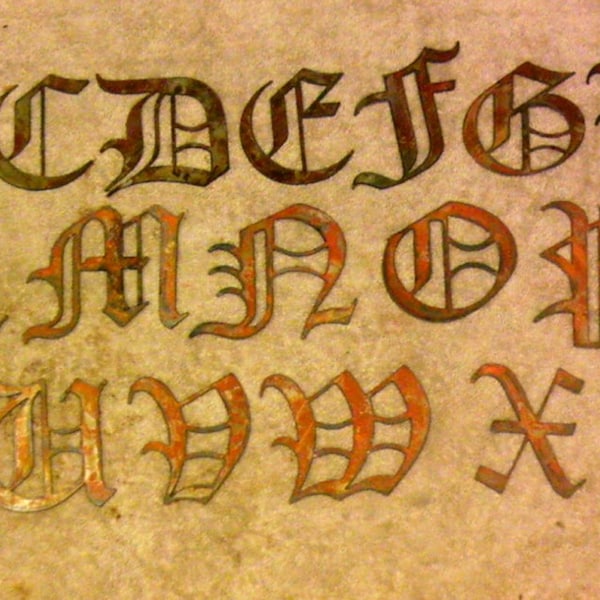 C D E F G
M N O P
U V W X